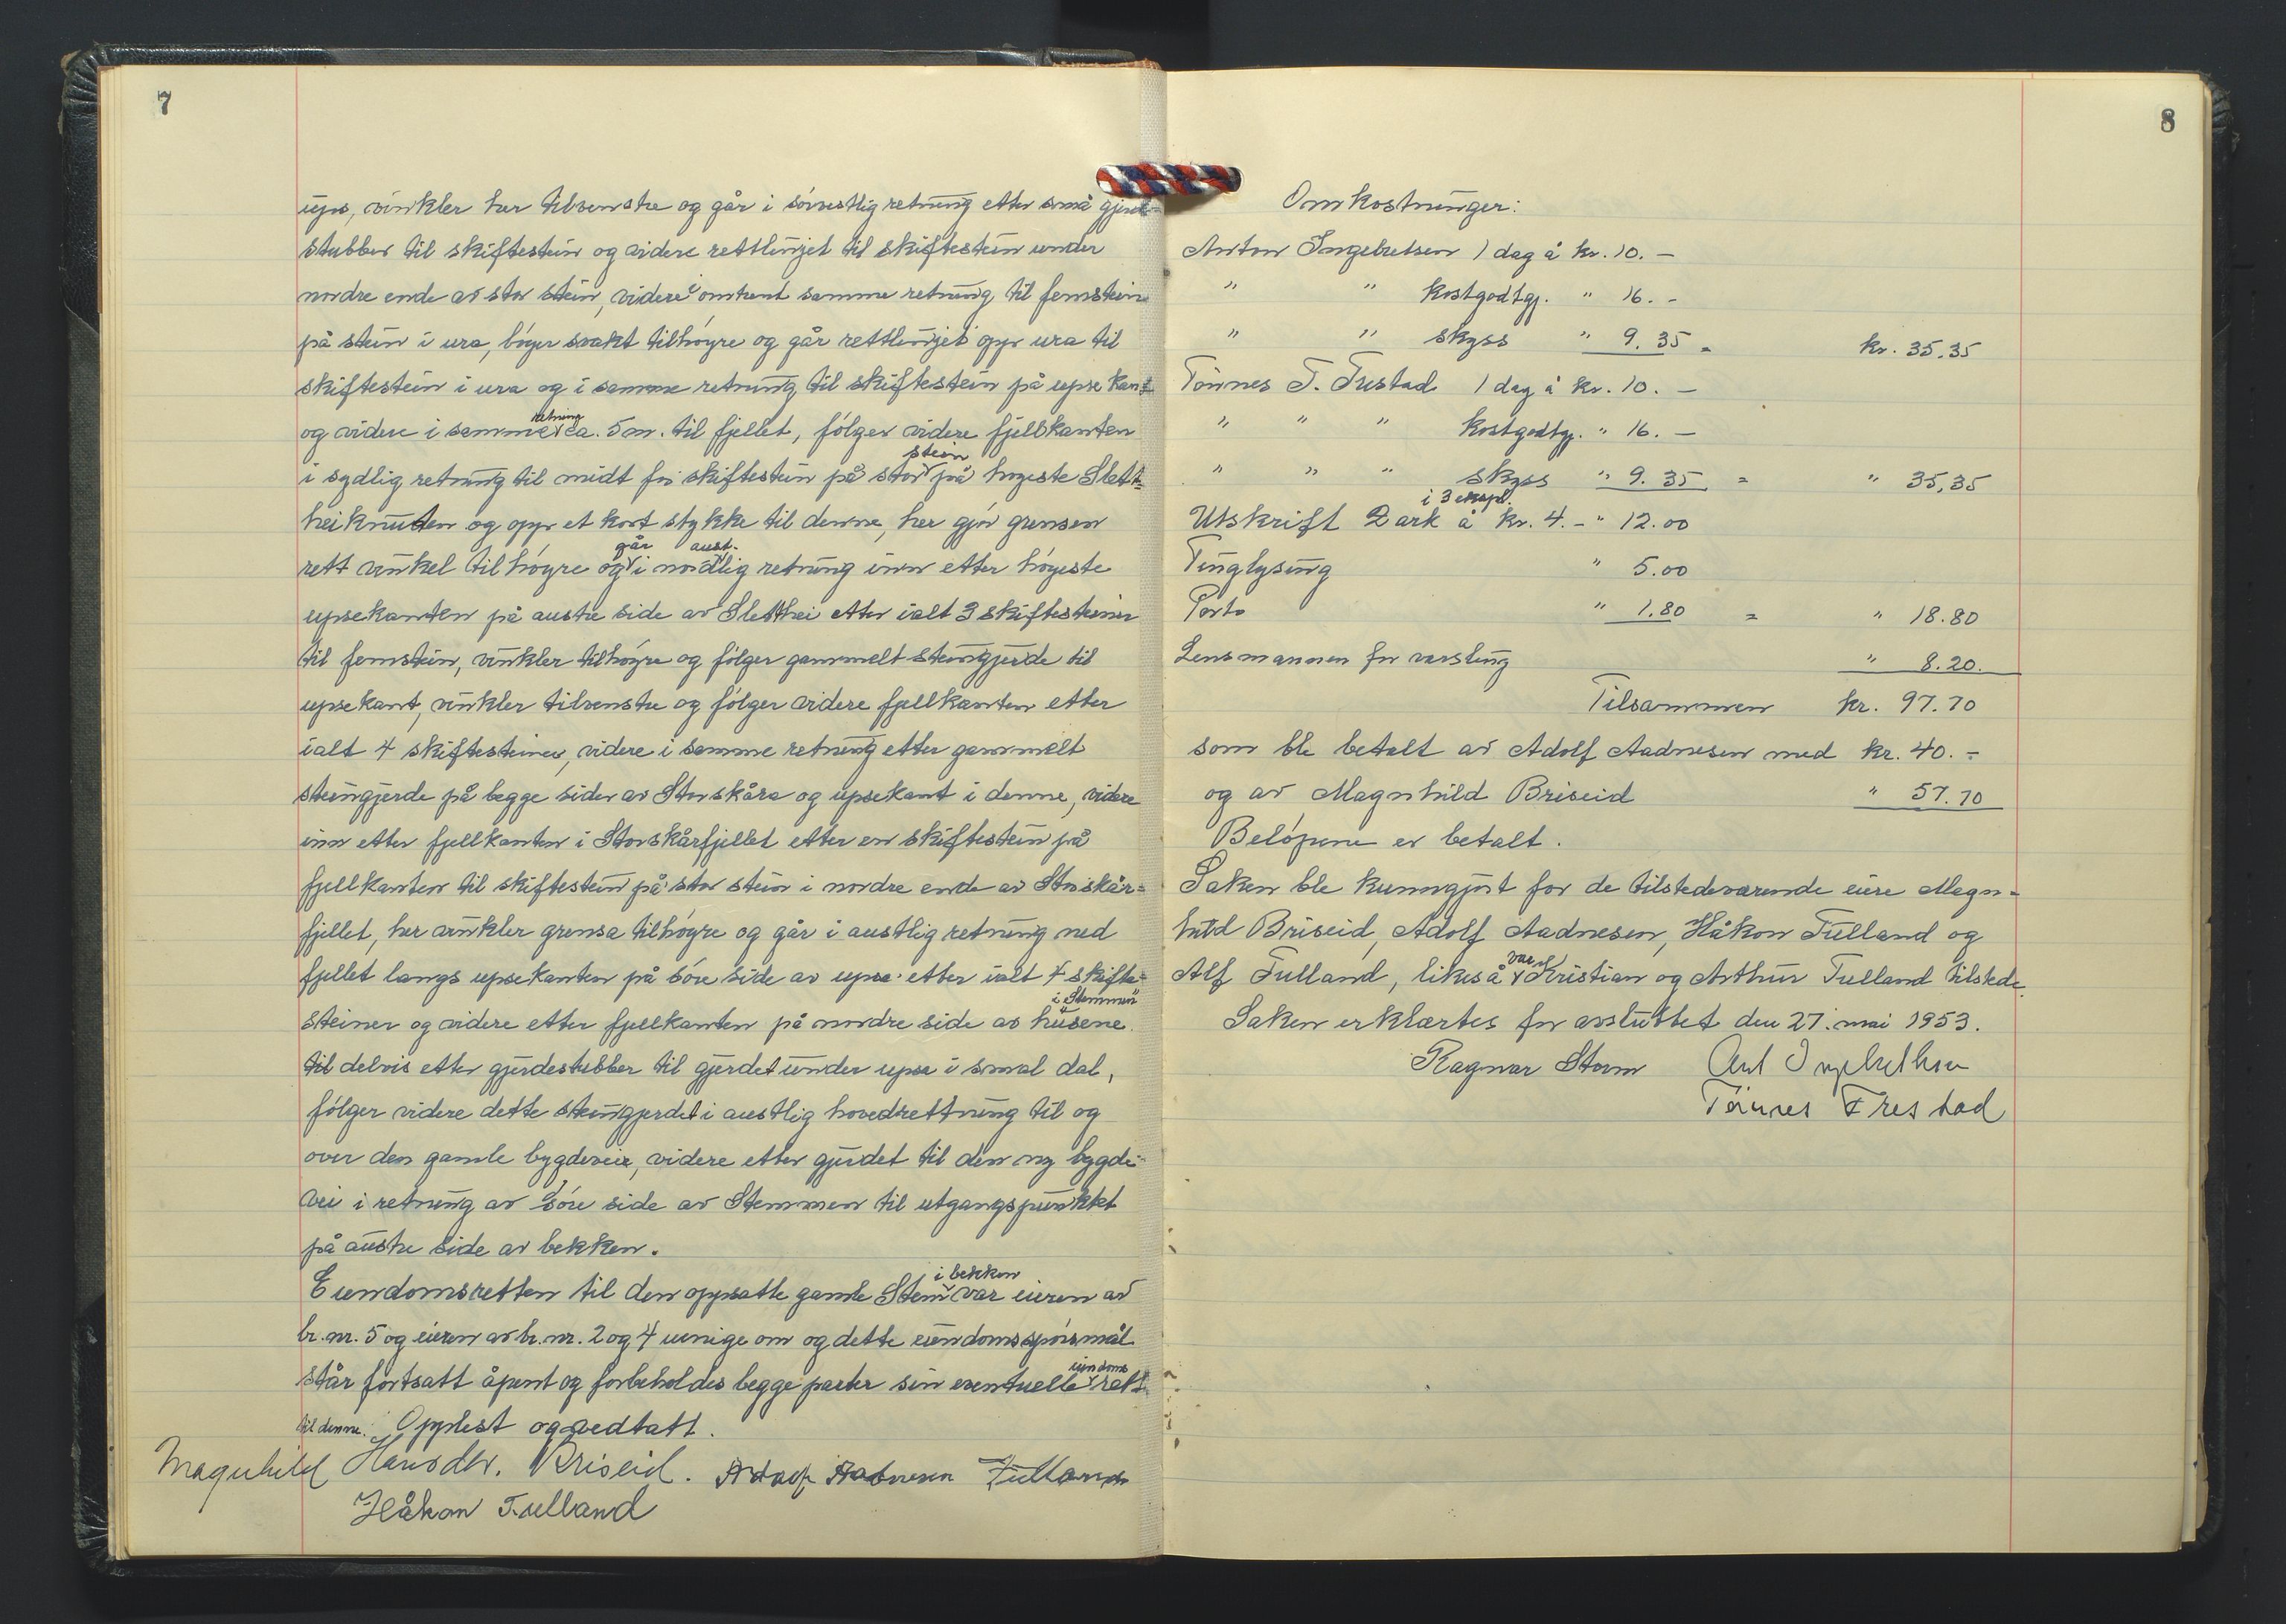 7
ups, vinkler her tilvenstre og går i sørvestlig retning etter små gjerde-
stubber til skiftestein og videre rettlinjet til skiftestein under
nordre ende av stor stein, videre i omtrent samme retning til femstein
på stein i ura, bøyer svakt tilhøyre og går rettlinjet opp ura til
skiftestein i ura og i samme retning til skiftestein på upse kant
og videre i samme retning ca. 5 m. til fjellet, følger videre fjellkanten
i sydlig retning til midt for skiftestein på stor stein på høgeste Slett-
heiknuten og opp et kort stykke til denne, her gjør grensen
rett vinkel til høyre og går i nordaustlig retning inn etter høyeste
upsekanten på austre side av Sletthei etter ialt 3 skiftesteiner
til femstein, vinkler tilhøyre og følger gammelt steingjerde til
upsekant, vinkler tilvenstre og følger videre fjellkanten etter
ialt 4 skiftesteiner, videre i samme retning etter gammelt
steingjerde på begge sider av Storskåra og upsekant i denne, videre
inn etter fjellkanten i Storskårfjellet etter en skiftestein på
fjellkanten til skiftestein på stor stein i nordre ende av Storskår-
fjellet, her vinkler grensa tilhøyre og går i austlig retning ned
fjellet langs upsekanten på søre side av upse etter ialt 4 skifte-
steiner og videre etter fjellkanten på nordre side av husene i Stemmen
til delvis etter gjerdestubber til gjerdet under upse i smal dal,
følger videre dette steingjerdet i austlig hovedrettning til og
over den gamle bygdevei, videre etter gjerdet til den ny bygde-
vei i retning av søre side av Stemmen til utgangspunktet
på austre side av bekken.
Eiendomsretten til den oppsatte gamle Stem i bekken var eieren av
br. nr. 5 og eieren av br. nr. 2 og 4 uenige om og dette eiendomsspørsmål
står fortsatt åpent og forbeholdes begge parter sin eventuelle eiendoms rett
til denne. Opplest og vedtatt.
Magnhild Hansdtr. Briseid. Adolf Aadnesen Tulland
Håkon Tulland
8
Omkostninger:
Anton Ingebretsen 1 dag à kr. 10. –
" " kostgodtgj. " 16. –
" " skyss " 9.35 = kr. 35,35
Tønnes T. Frestad 1 dag à kr. 10. –
" " " kostgodtgj. " 16. –
" " " skyss " 9.35 = " 35,35
Utskrift 2 ark i 3 eksepl. à kr. 4. – " 12.00
Tinglysing " 5.00
Porto " 1.80 = " 18.80
Lensmannen for varsling " 8.20.
Tilsammen kr. 97.70
som ble betalt av Adolf Aadnesen med kr. 40. –
og av Magnhild Briseid " 57.70
Beløpene er betalt.
Saken ble kunngjort for de tilstedeværende eiere Magn-
hild Briseid, Adolf Aadnesen, Håkon Tulland og
Alf Tulland, likeså var Kristian og Arthur Tulland tilstede.
Saken erklærtes for avsluttet den 27. mai 1953.
Ragnar Storm Ant Ingebretsen
Tønnes Frestad